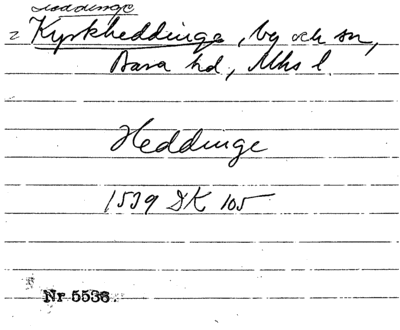 Heddinge
2 Kyrkheddinge, by och sn,
Bara hd, Mhs l.
Heddinge
1539 DK 105
Nr 5536.